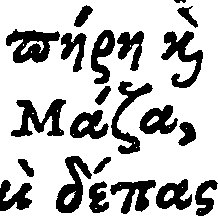 ϖήρη ϗ̀
Μάζα,
δέπας